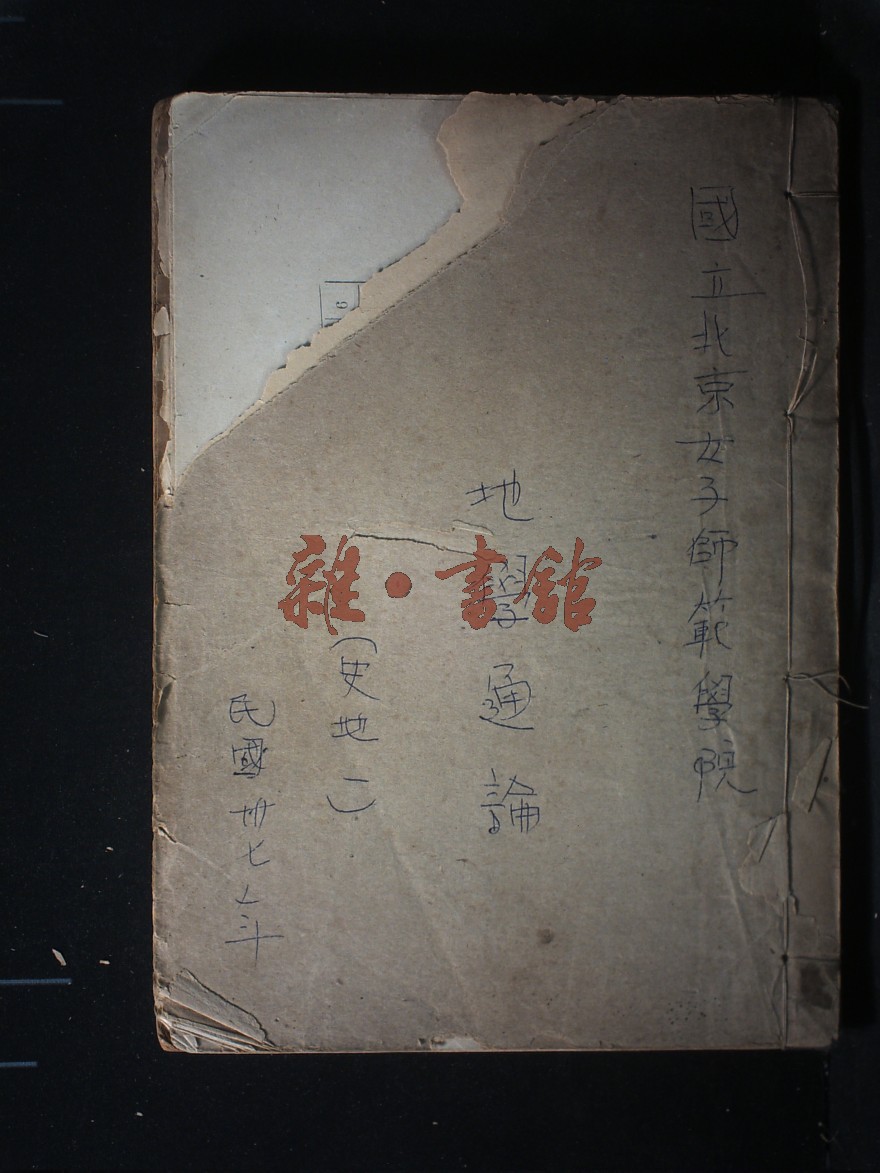 國立北京女子師範學院
地學通論
（史地一）
民國卅七年
6
雜·書館